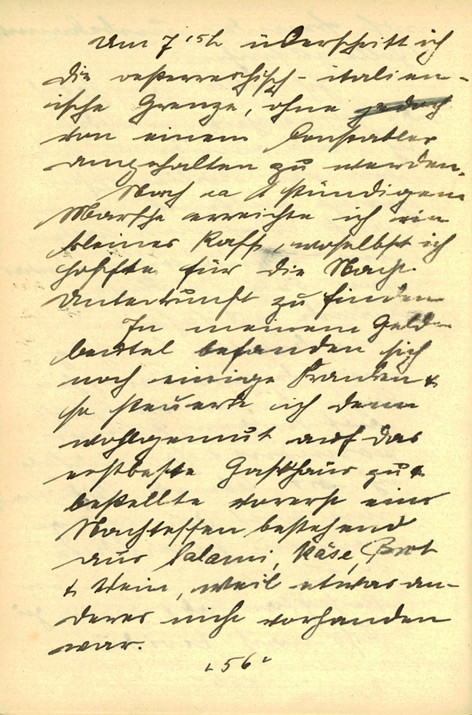 Um 7 15h überschritt ich
die oesterreichisch - italien-
ische Grenze, ohne jedoch
von einem
angehalten zu werden.
Nach ca stündigem
Marsche erreichte ich ein
kleines Kaff, woselbst ich
hoffte für die Nacht
Unterkunft zu finden
In meinem Geld-
beutel befanden sich
noch einige Franken &
so steuerte ich denn
wohlgemut auf das
erstbeste Gasthaus zu &
bestellte vorerst ein
Nachtessen bestehend
aus Salami, Käse, Brot
& Wein, weil etwas an-
deres nicht vorhanden
war.
- 56 -